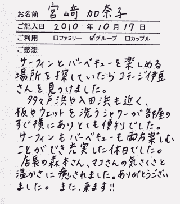 お名前 宮崎 加奈子
ご記入日 2010年10月17日
ご利用 □ファミリー □グループ □カップル
ご感想
サーフィンとバーベキューを楽しめる
場所を探していたらコテージ伊豆
さんを見つけました。
多々戸浜や入田浜も近く、
板やウェットを洗うシャワーが部屋の
すぐ横にありとても便利でした。
サーフィンもバーベキューも両方楽しむ
ことができ充実した休日でした。
店長の森本さん、マコさんの気さくさと
温かさに癒されました。ありがとうござい
ました。また、来ます!!